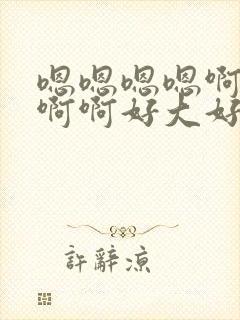 嗯嗯嗯嗯啊
啊啊好大好
許辭凉